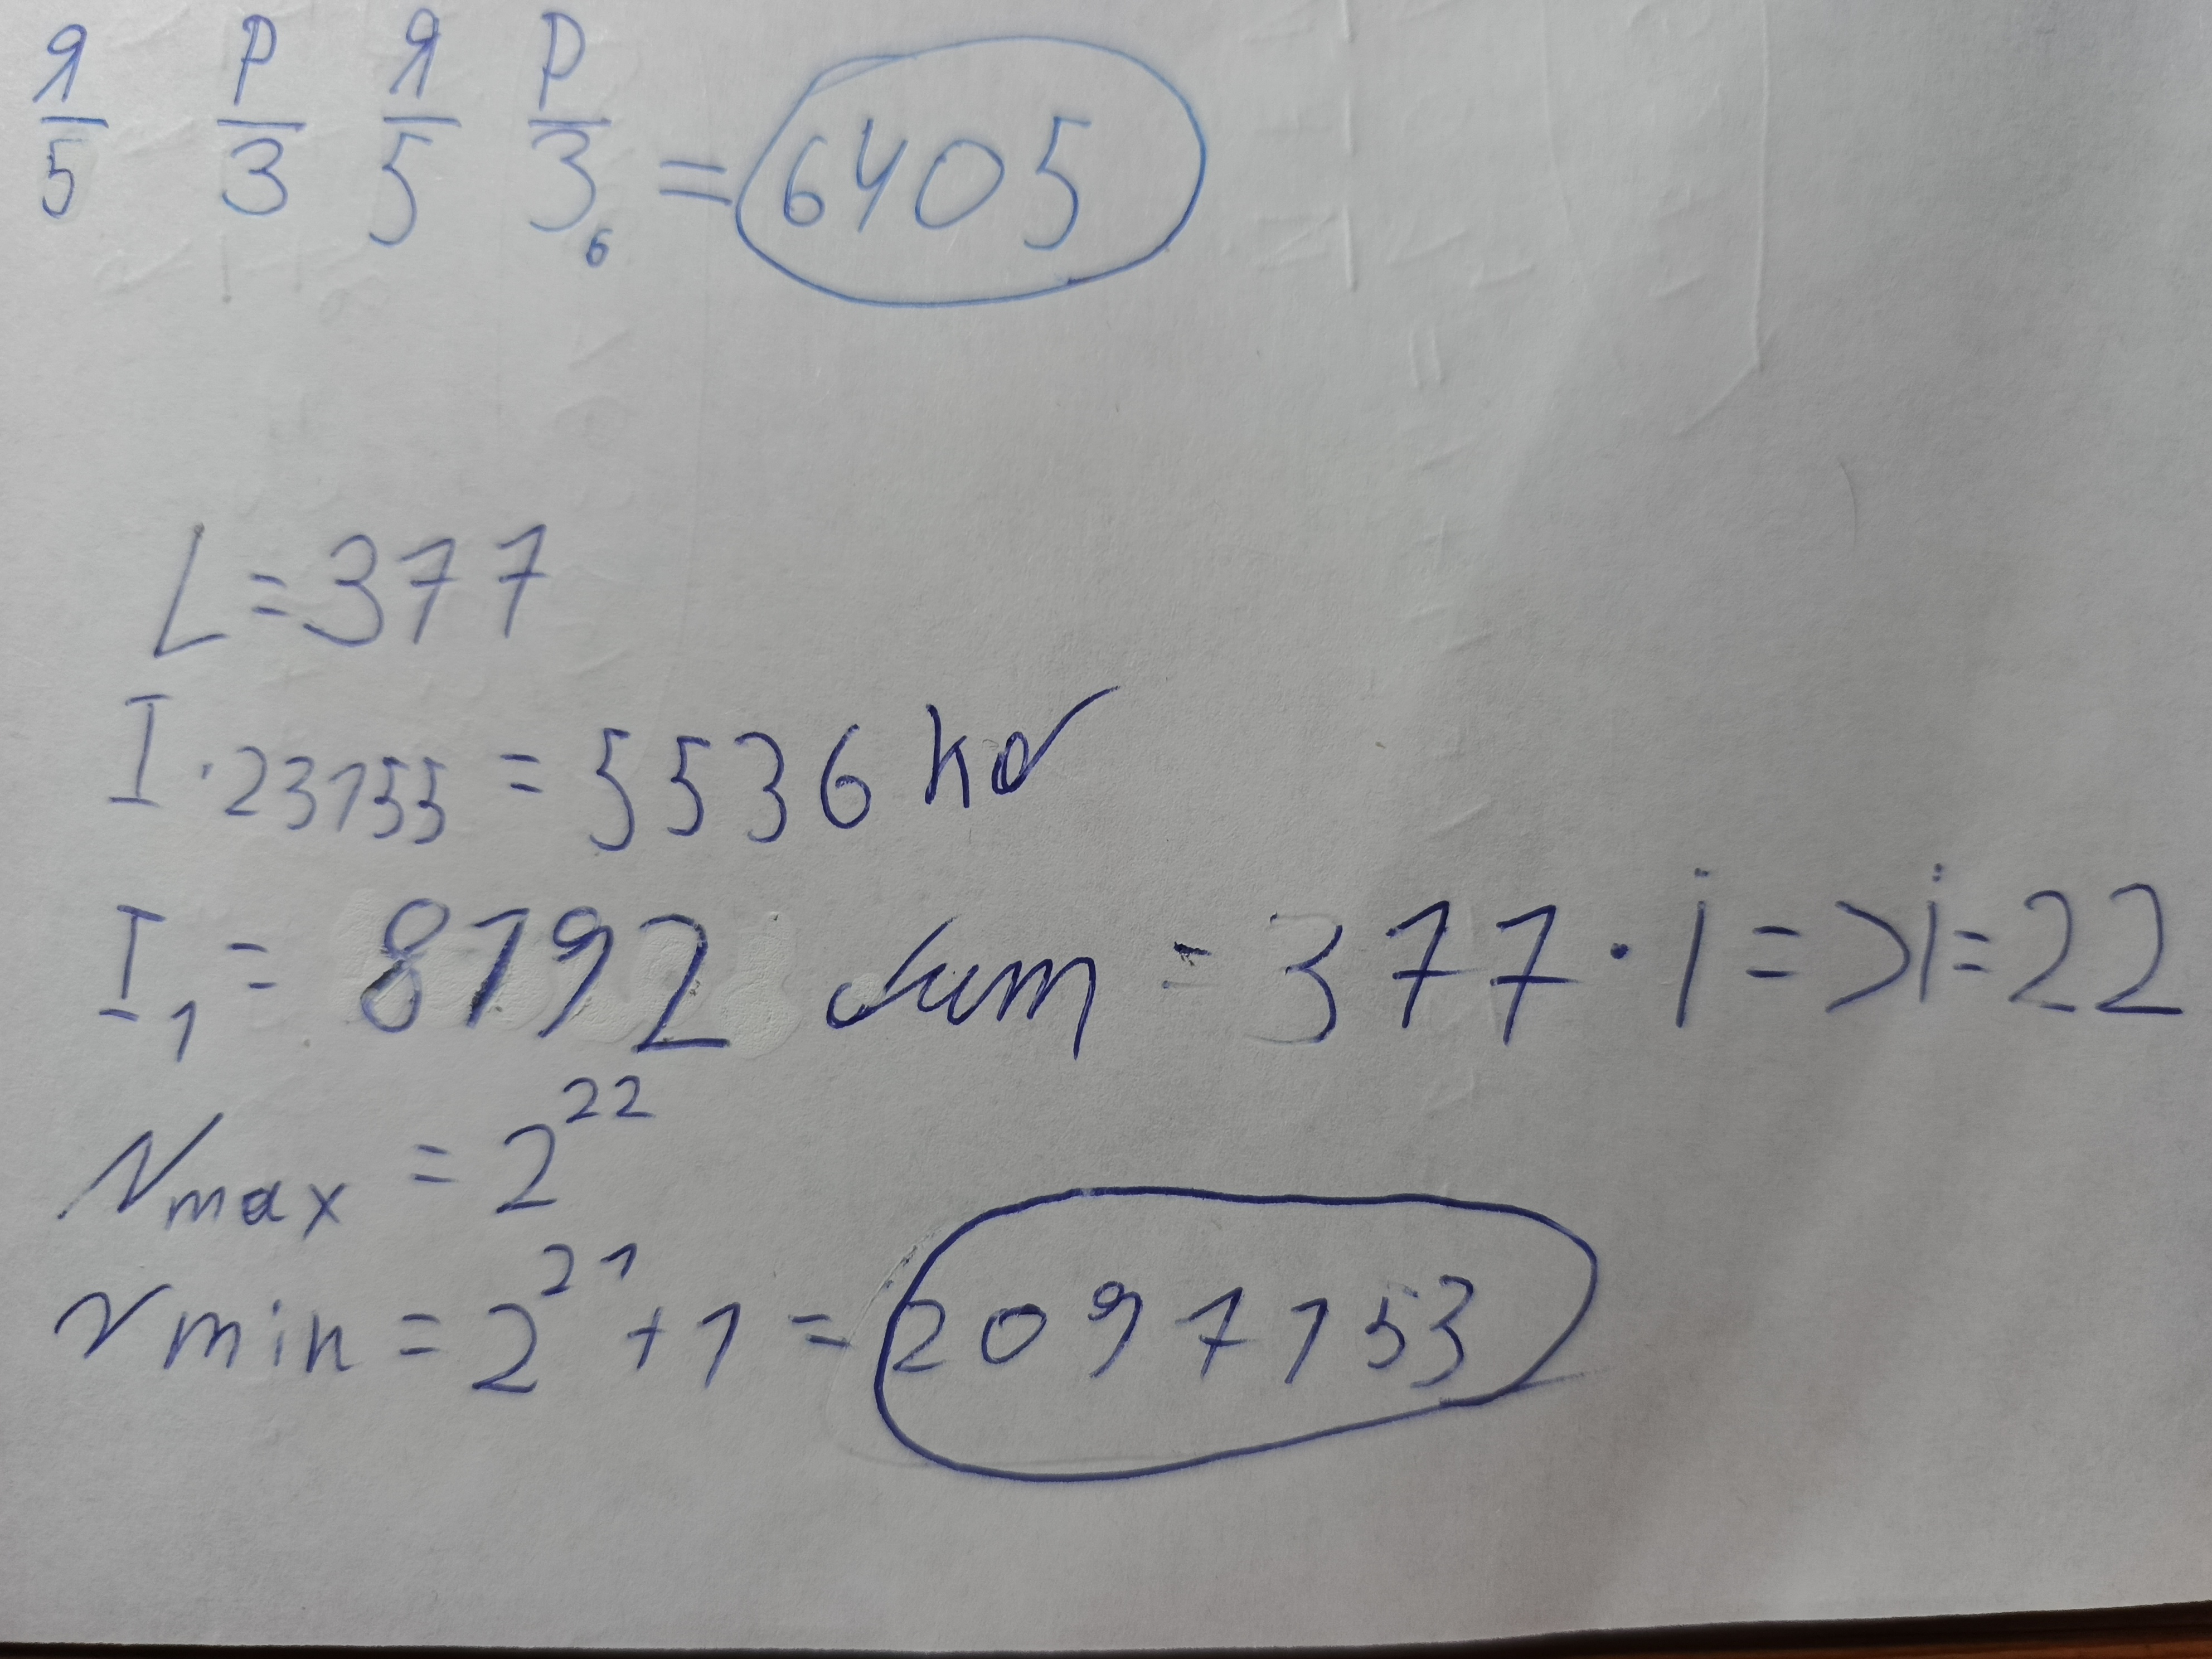 я р я р
5 3 5 3₆ = 6405
L=377
I · 23155 = 5536 кб
I₁ = 8192 бит = 377 · i => i=22
Nmax = 2²²
Nmin = 2²¹ + 1 = 2097153